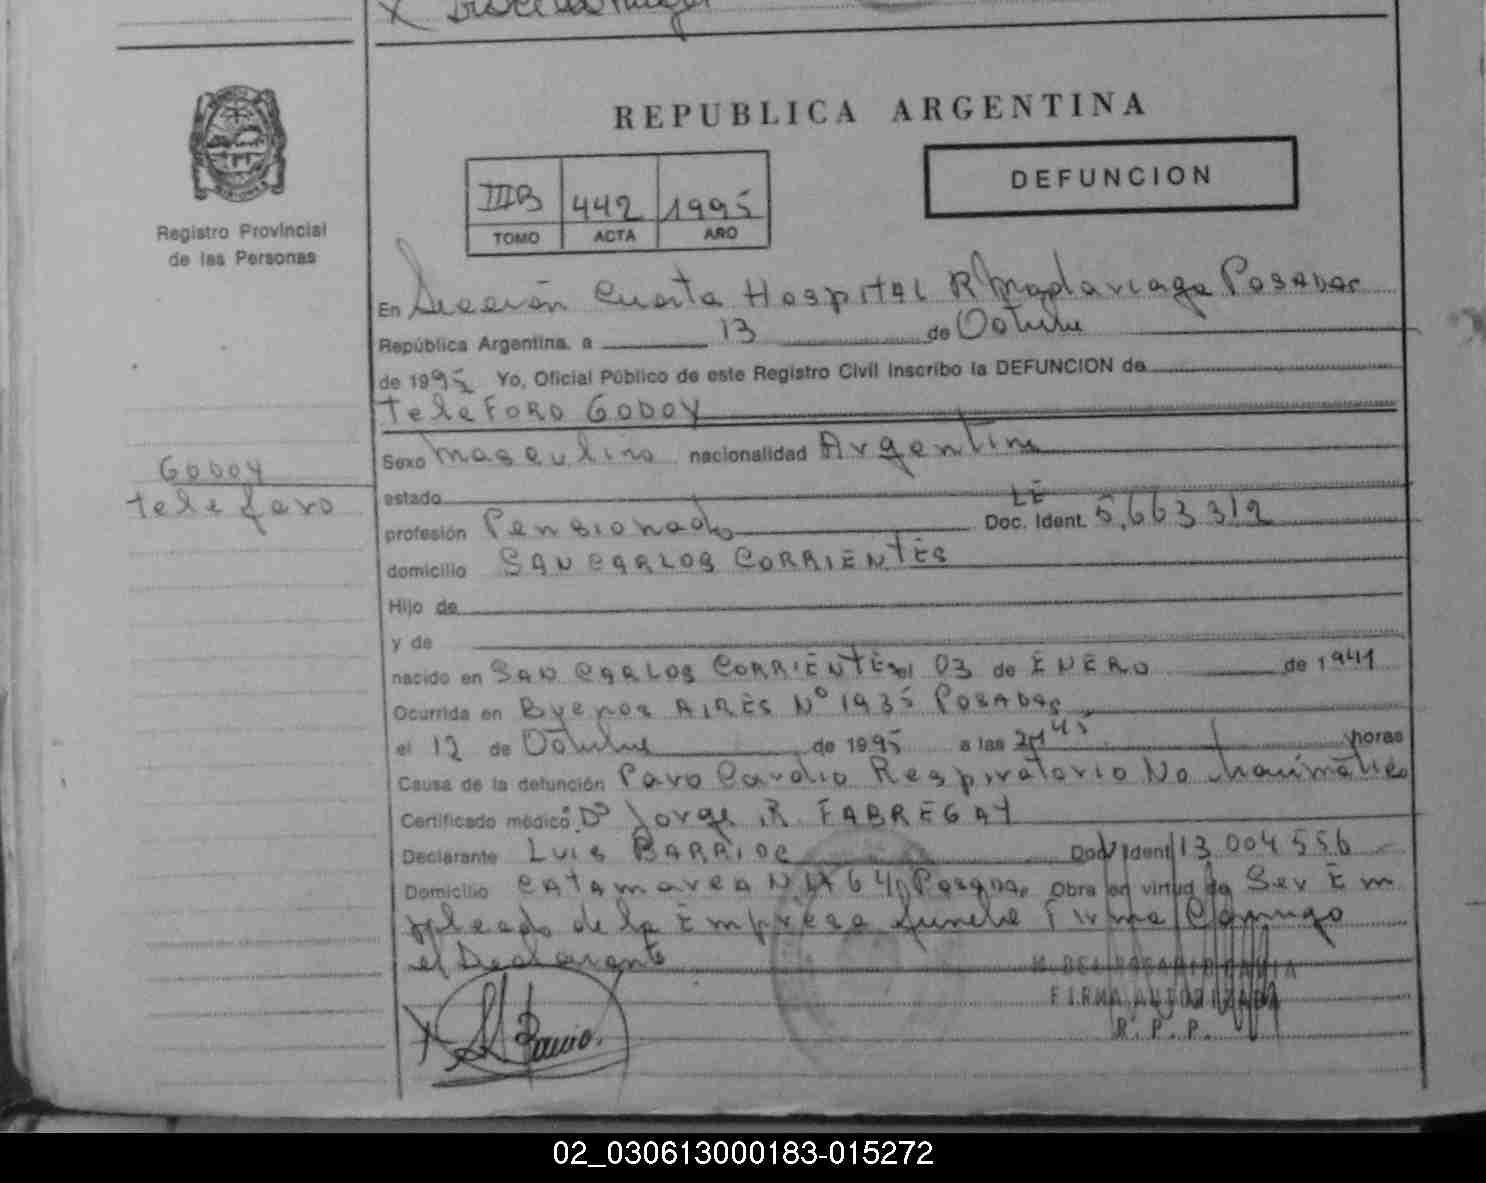 REPUBLICA ARGENTINA
DEFUNCION
IIIB 442 1995
TOMO ACTA AÑO
Registro Provincial
de las Personas
En Sección Cuarta Hospital R Madariaga Posadas
República Argentina, a 13 de Octubre
de 1995 Yo, Oficial Público de este Registro Civil Inscribo la DEFUNCION de
TeleFORO GODOY
GODOY
Teleforo
Sexo masculino nacionalidad Argentina
estado
LE
profesión Pensionado Doc. Ident. 5.663.312
domicilio SAN CARLOS CORRIENTES
Hijo de
y de
nacido en SAN CARLOS CORRIENTES el 03 de ENERO de 1941
Ocurrida en Buenos AIRES Nº 1935 POSADAS
el 12 de Octubre de 1995 a las 21 45 horas
Causa de la defunción Paro Cardio Respiratorio No traumático
Certificado médico Dr Jorge R. FABREGAT
Declarante LUIS BARRIOS Doc. Ident 13.004.556
Domicilio CATAMARCA Nº Posadas Obra en virtud de Ser Em
pleado de la Empresa funebre Firma Conmigo
el Declarante
FIRMA AUTORIZADA
R. P. P.
Barrio
02_030613000183-015272